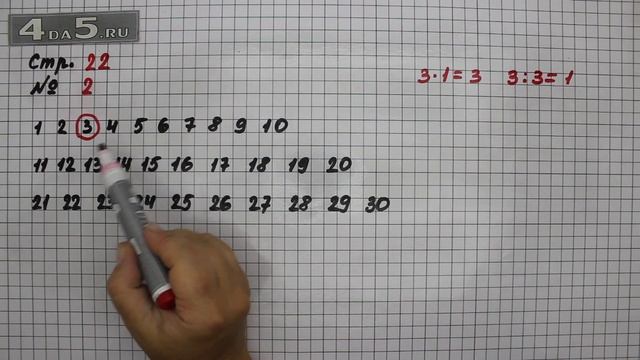 4DA5.RU
Стр. 22
№ 2
3·1=3 3:3=1
1 2 3 4 5 6 7 8 9 10
11 12 13 14 15 16 17 18 19 20
21 22 23 24 25 26 27 28 29 30